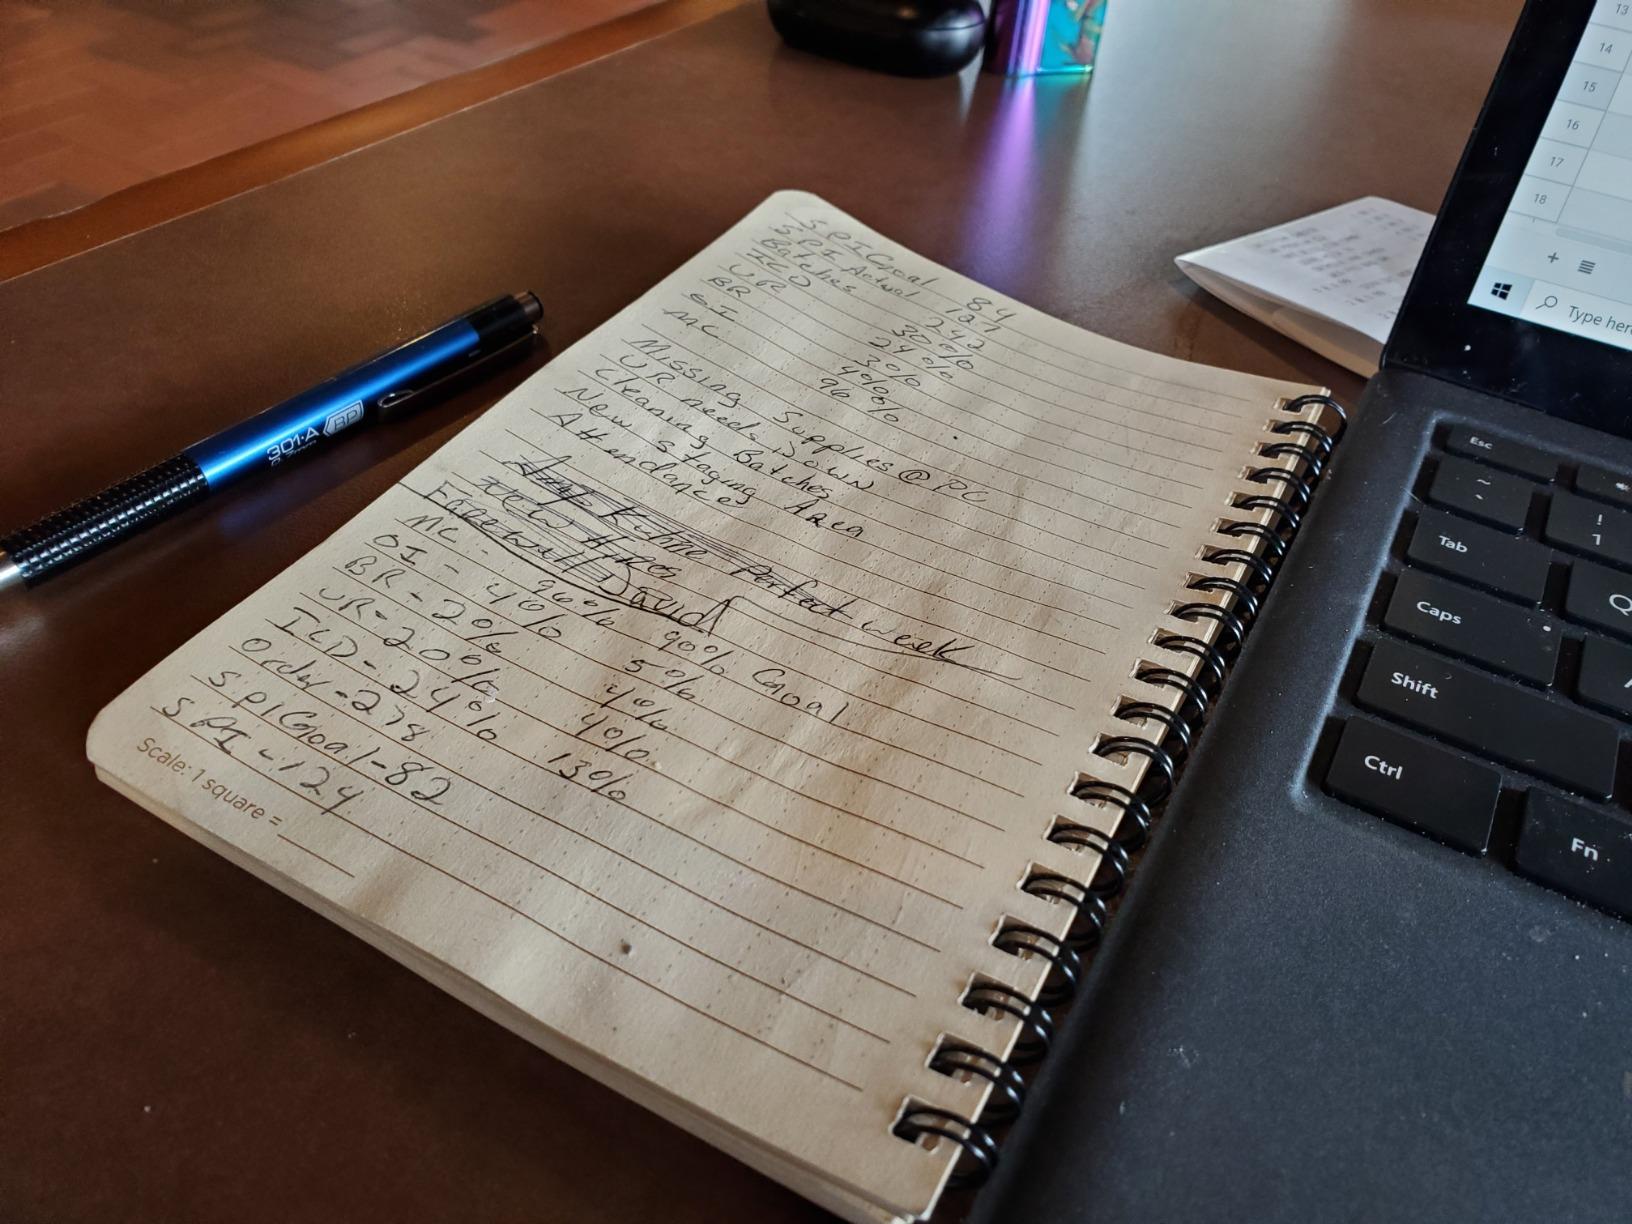 SPI Goal 84
SPI Actual 127
Batches 242
ICD 30%
UR 24%
BR 3%
OI 4%
MC 96%
Missing Supplies @ PC
UR needs
Cleaning Batches
New Staging Area
Attendance
Perfect week
New Hires
Farewell David
MC - 96% 90% Goal
OI - 4% 5%
BR - 2% 4%
UR - 20% 4%
ICD - 24% 13%
Order - 278
SPI Goal - 82
SPI - 124
Scale: 1 square =
301·A BP
0.7mm
13
14
15
16
17
18
+
Type here
Esc
~
`
!
1
Tab
Q
Caps
Shift
Ctrl
Fn